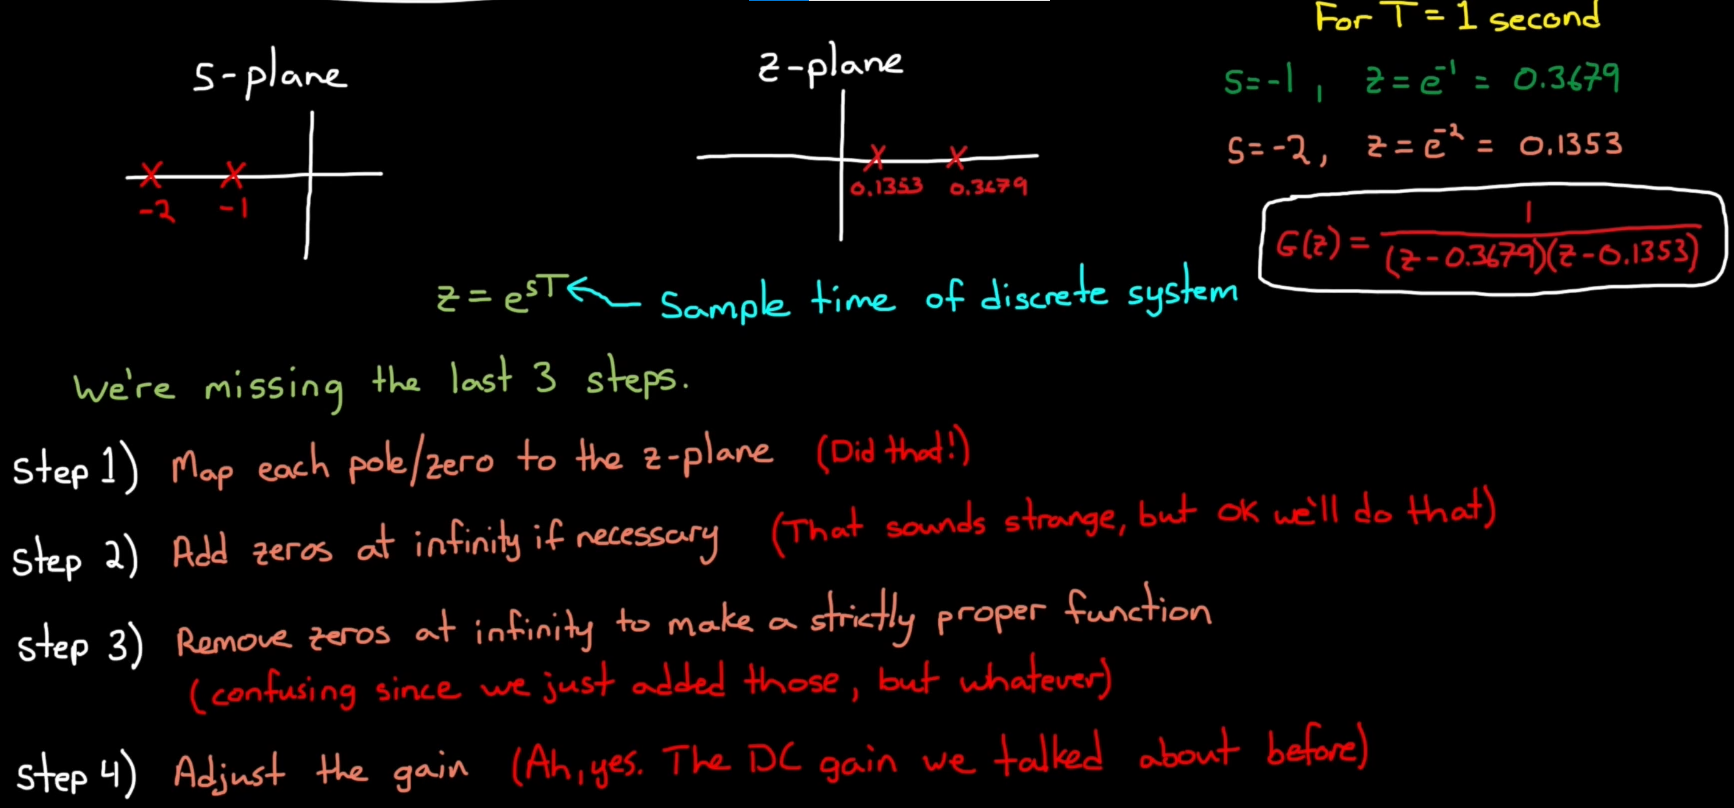 For T = 1 second
S-plane
z-plane
S=-1, z = e^-1 = 0.3679
S=-2, z = e^-2 = 0.1353
-2 -1
0.1353 0.3679
G(z) = 1 / (z-0.3679)(z-0.1353)
z = e^sT ← Sample time of discrete system
We're missing the last 3 steps.
Step 1) Map each pole/zero to the z-plane (Did that!)
Step 2) Add zeros at infinity if necessary (That sounds strange, but ok we'll do that)
Step 3) Remove zeros at infinity to make a strictly proper function
(confusing since we just added those, but whatever)
Step 4) Adjust the gain (Ah, yes. The DC gain we talked about before)